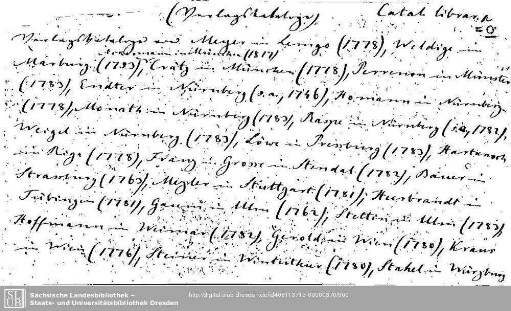 (Verlagskataloge) Catal. librar. A
=0
Verlagskataloge von Meyer in Lemgo (1778), Weldige in
Lindauer in München (1817)
Marburg (1793), Crätz in München (1778), Perrenon in Münster
(1783), Endter in Nürnberg (s.a., 1746), Homann in Nürnberg
(1778), Monath in Nürnberg (1783), Raspe in Nürnberg (s.a., 1782),
Weigel in Nürnberg (1783), Löwe in Pressburg (1783), Hartknoch
in Riga (1778), Franz u. Grosse in Stendal (1782), Bauer in
Strassburg (1765), Mezler in Stuttgart (1781), Heerbrandt in
Tübingen (1781), Gaum in Ulm (1762), Stettin in Ulm (1783),
Hoffmann in Weimar (1782), Gerold in Wien (1780), Kraus
in Wien (1776), Steiner in Winterthur (1780), Stahel in Würzburg
SLUB
Sächsische Landesbibliothek –
Staats- und Universitätsbibliothek Dresden